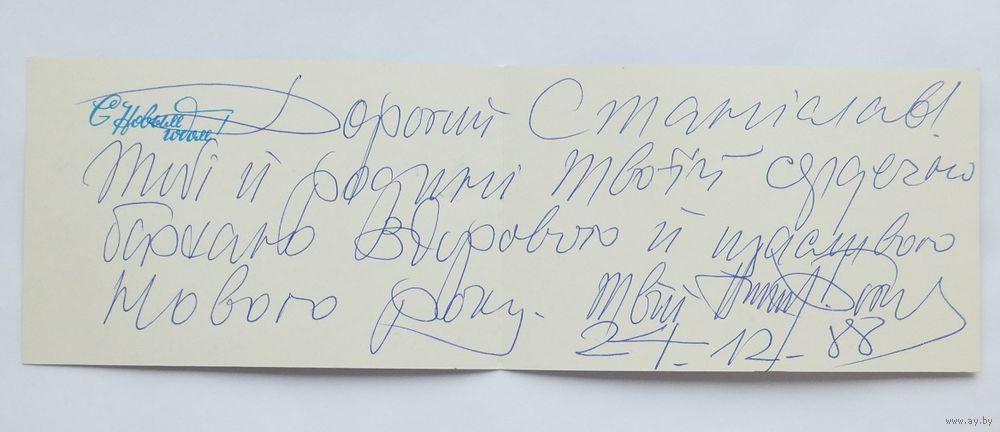 С Новым
годом!
Дорогий Станіслав!
Тобі й родині твоїй сердечно
бажаю здорового й щасливого
Нового року. Твій
24-12-88
www.ay.by